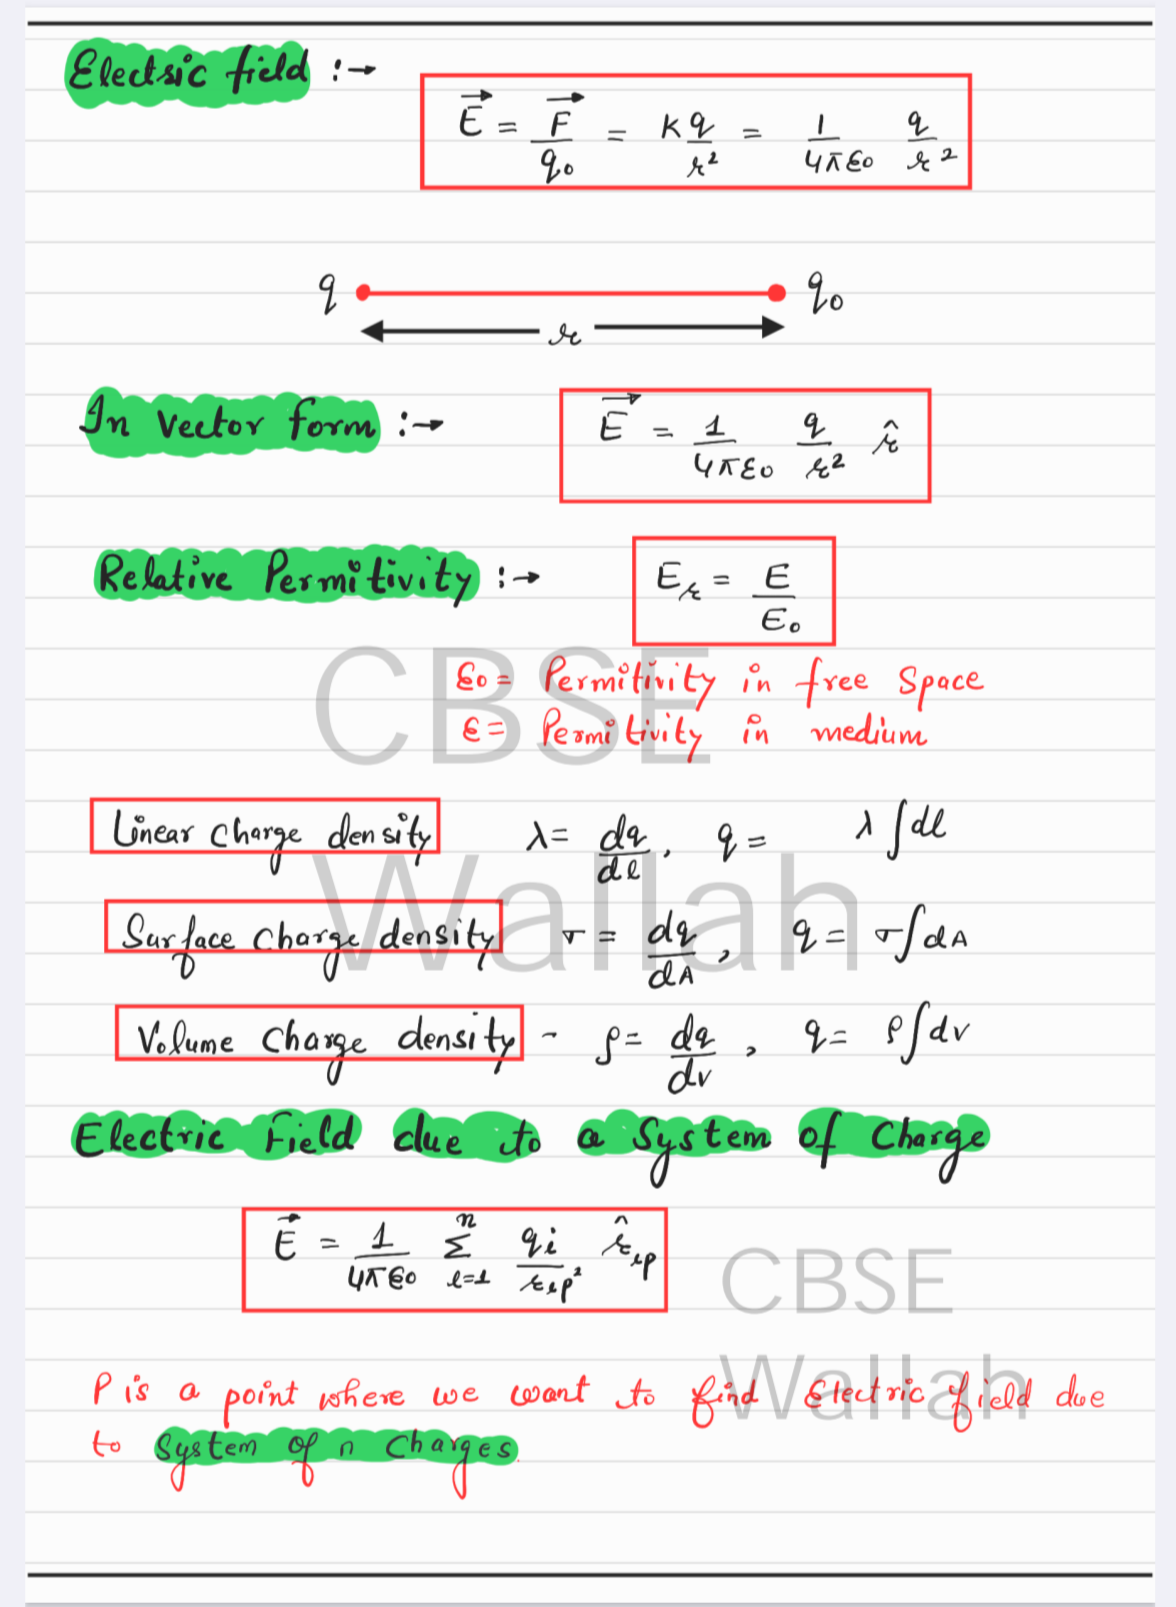 Electric field :→
E⃗ = F⃗/q₀ = K q/r² = 1/4πε₀ q/r²
q q₀
r
In Vector form :→
E⃗ = 1/4πε₀ q/r² r̂
Relative Permitivity :→
Eᵣ = E/E₀
ε₀ = Permitivity in free Space
ε = Permitivity in medium
CBSE
Linear Charge density λ = dq/dl, q = λ∫dl
Wallah
Surface Charge density σ = dq/dA, q = σ∫dA
Volume Charge density - ρ = dq/dv, q = ρ∫dv
Electric Field due to a System of Charge
E⃗ = 1/4πε₀ Σ(i=1 to n) qi/r_ip² r̂_ip
CBSE
Wallah
P is a point where we want to find Electric field due
to System of n Charges.